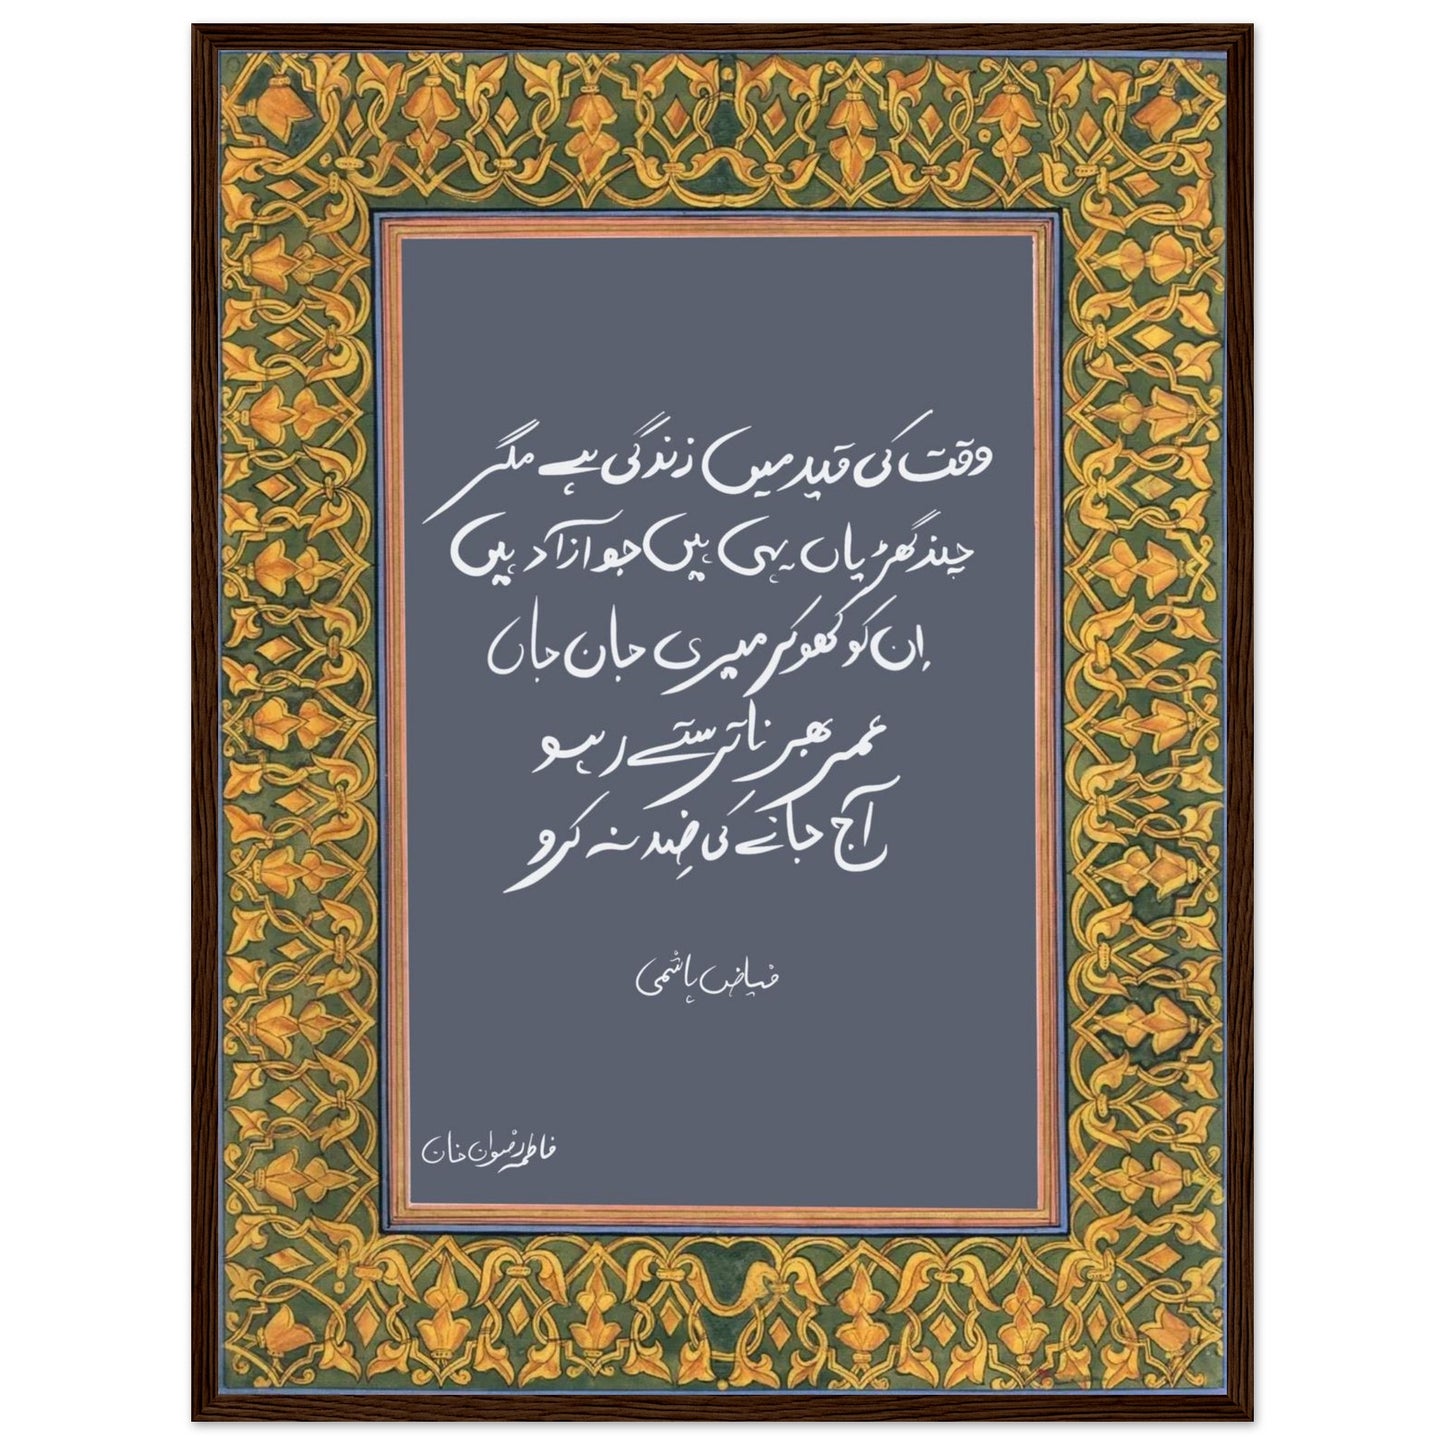 وقت کی قید میں زندگی ہے مگر
چند گھڑیاں یہی ہیں جو آزاد ہیں
اِن کو کھو کر میری جان جاں
عمر بھر نا ترستے رہو
آج جانے کی ضِد نہ کرو
فیاض ہاشمی
فاطمہ رضوان خان